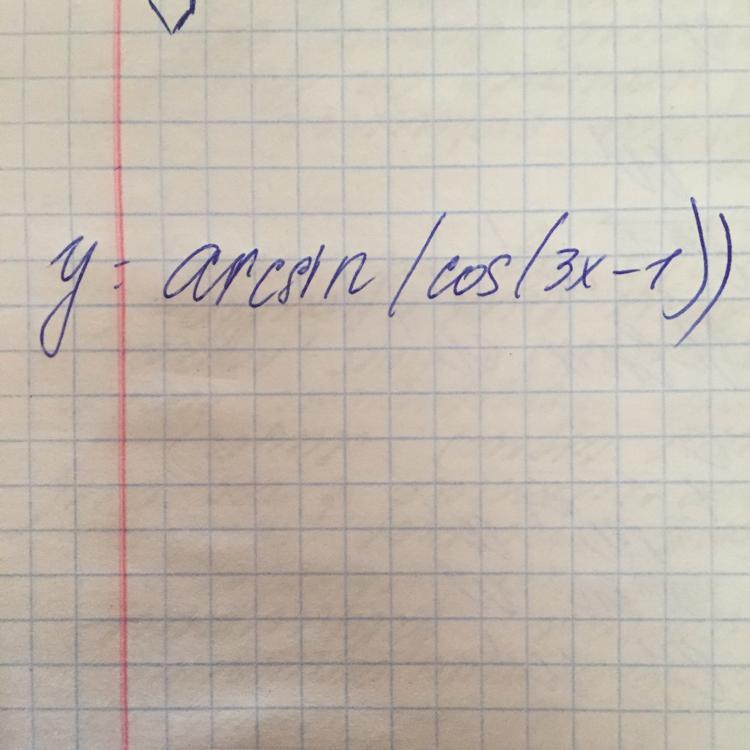 y = arcsin (cos(3x-1))